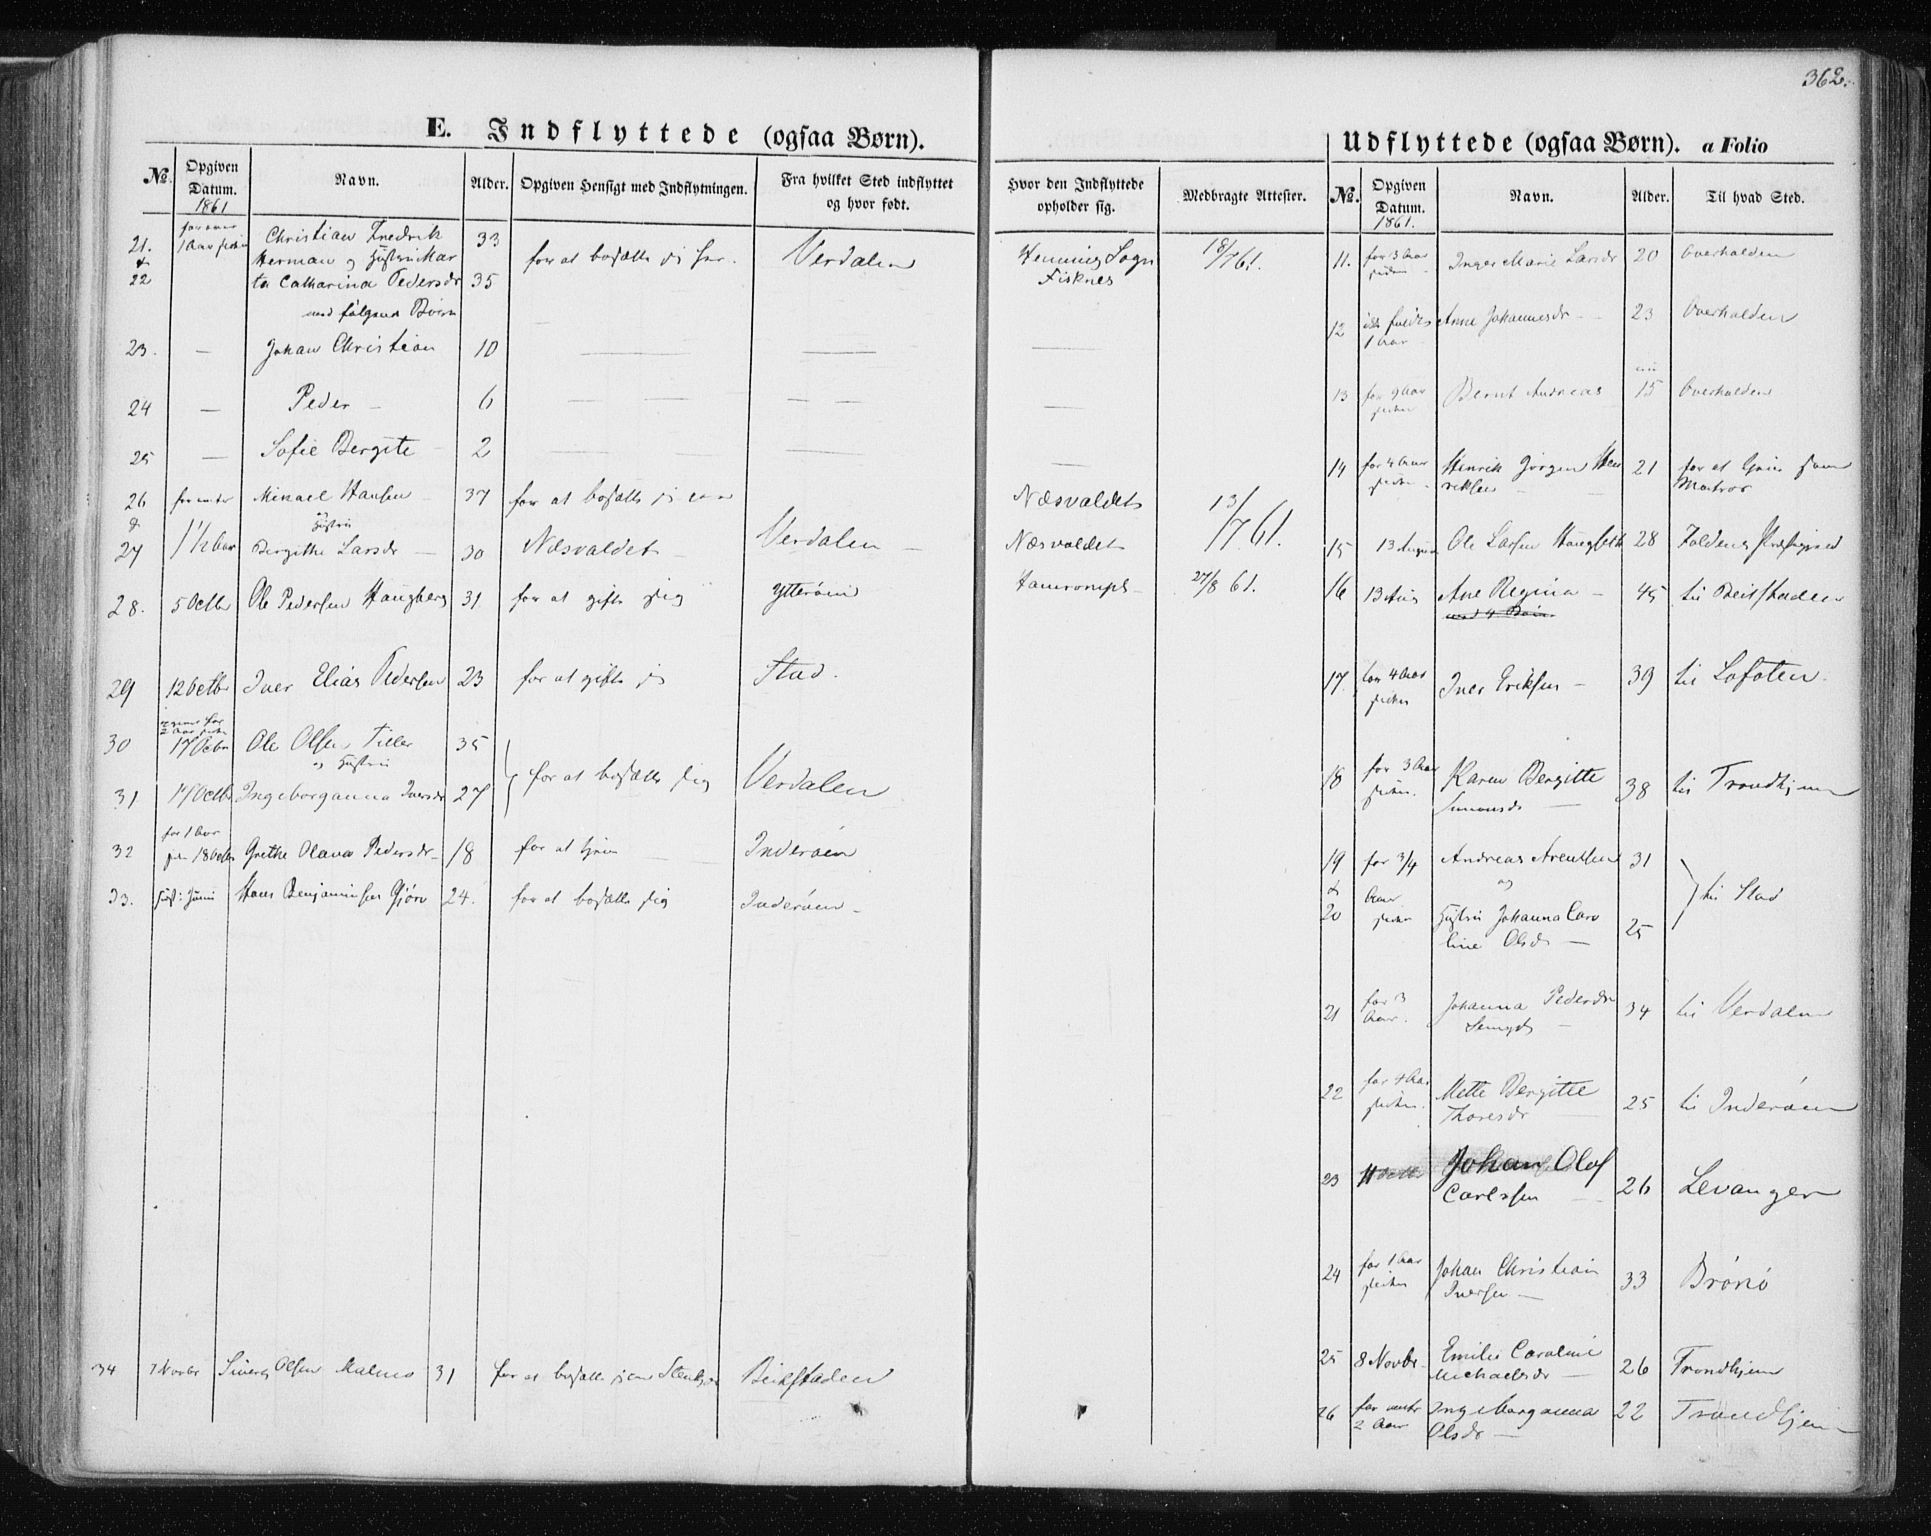 362.
E. Indflyttede (ogsaa Børn).
№. Opgiven Datum. 1861 Navn. Alder. Opgiven Hensigt med Indflytningen. Fra hvilket Sted indflyttet og hvor født. Hvor den Indflyttede opholder sig. Medbragte Attester.
21. 1 Aar siden Christian Fredrik 33
& Herman og Hustru Mar for at bosætte sig her. Verdalen Henning Sogn 18/7 61.
22 ta Catharina Pedersdr 35 Fisknes
med følgende Børn
23. — Johan Christian 10 — — —
24 — Peder — 6 — — — — —
25 — Sofie Bergite — 2 — — — —
26 for under Mikael Hansen 37 for at bosætte sig Næsvaldet 13/7 61.
& 1½ Aar og Hustru
27 Bergithe Larsdr — 30 Næsvaldet — Verdalen — Næsvaldet
28. 5 Octbr Ole Pedersen Haugberg 31 for at gifte sig Ytterøen 27/8 61.
29 12 Octbr Iver Elias Pedersen 23 for at gifte sig Stod.
30 2 Aar siden 17 Octbr Ole Olsen Tiller 35
og Hustru
for at bosætte sig Verdalen
31 17 Octbr Ingeborganna Iversdr 27
32 for 1 Aar siden 18 Octbr Grethe Olava Pedersdr 18 for at tjene Inderøen
33. Juni Hans Benjaminsen Gjørv 24. for at bosætte sig Inderøen —
34 7 Novbr Sivert Olsen Malmo 31 for at bosætte sig Beitstaden
Udflyttede (ogsaa Børn). a Folio
№. Opgiven Datum. 1861. Navn. Alder. Til hvad Sted.
11. for 3 Aar siden Inger Marie Larsdr 20 Overhalden
12 1 Aar Anne Johannesdr — 23 Overhalden
13 for 9 Aar siden Bernt Andreas 15 Overhalden
14 for 4 Aar siden Henrik Jørgen Hen 21 for at tjene som
riksen — Matros
15 13 August Ole Larsen 28 Foldens Præstegjeld
16 13 Aug Ane Regina — 45 til Beitstaden
med 4 Børn
17. for 4 Aar siden Iver Eriksen — 39 til Lofoten.
18 for 3 Aar siden. Karen Bergitte 38 til Trondhjem
Simonsdr —
19 for 3/4 Andreas Arentsen 31
& Aar og til Stod
20 siden Hustru Johanna Caro 25
line Olsdr —
21 for 3 Aar. Johanna Pedersdr 34 til Verdalen
22 for 4 Aar siden. Mette Bergitte 25 til Inderøen
Thoresdr
23 11 Octbr Johan Olof
Carlssen — 26 Levanger
24 for 1 Aar siden Johan Christian 33 Brønø
Iversen —
25 8 Novbr. Emilie Caroline 26 Trondhjem
Michaelsdr —
26 for under 2 Aar Ingeborganna 22 Trondhjem
Olsdr —